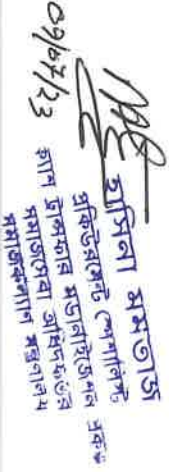 ০৭/০৫/২৩
মমতাজ
প্রকিউরমেন্ট স্পেশালিস্ট
ক্যাশ ট্রান্সফার মডার্নাইজেশন প্রকল্প
সমাজসেবা অধিদফতর
সমাজকল্যাণ মন্ত্রণালয়